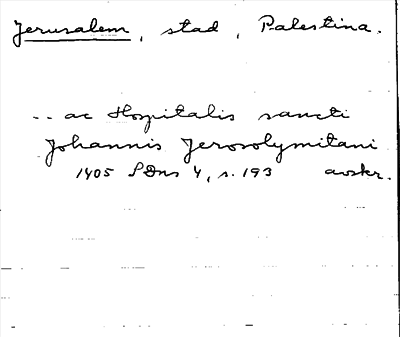 Jerusalem, stad, Palestina.
.. ac Hospitalis sancti
Johannis Jerosolymitani
1405 SDns 4, s. 193 avskr.